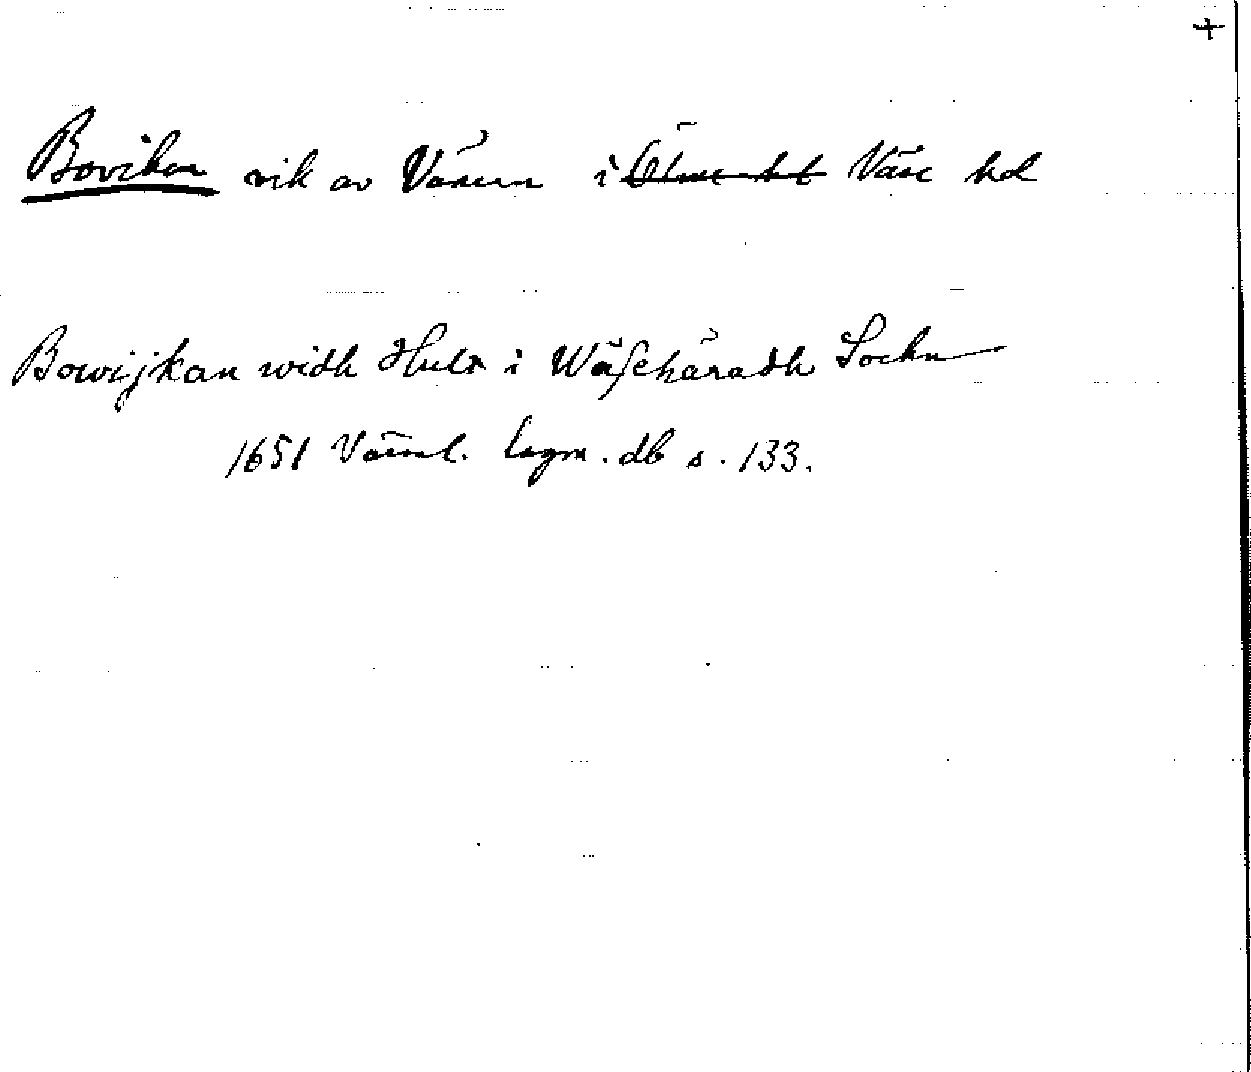 +
Boviken vik av Vänern i Ölme hd Väse hd
Bowijkan widh Hult i Wäsehäradh Sochn
1651 Värml. lagm. db s. 133.